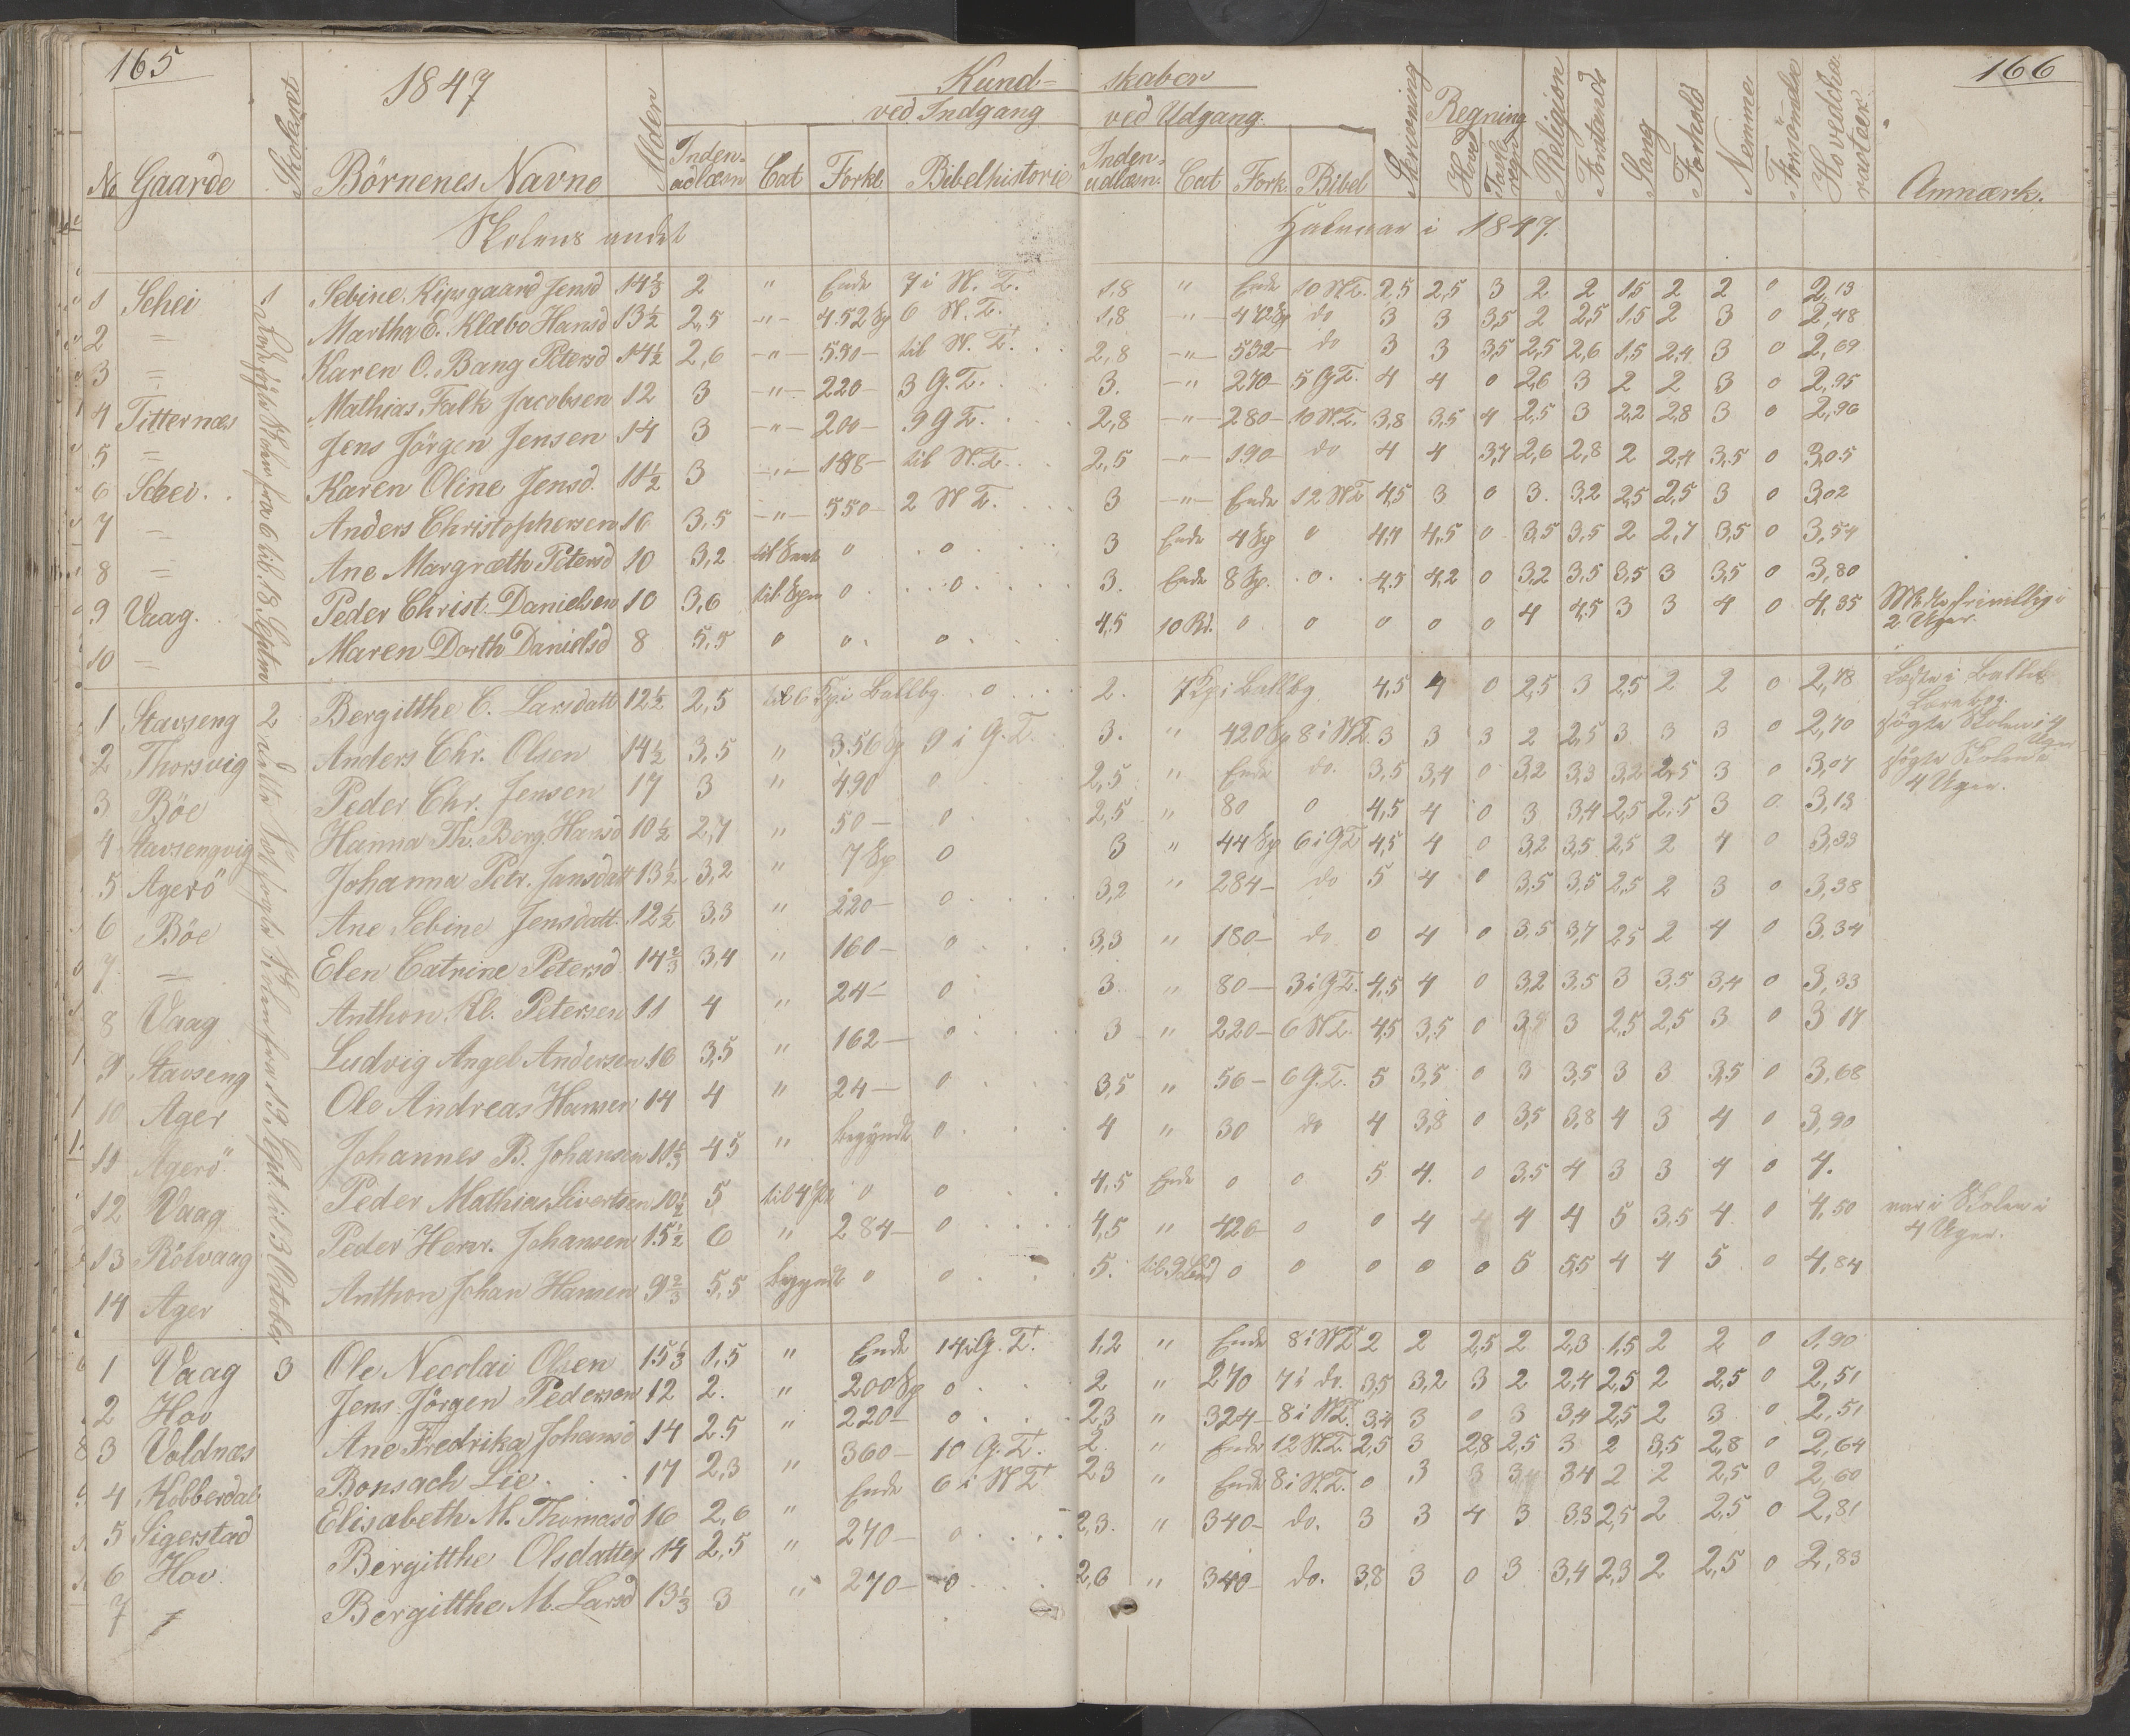 165
1847
Kund-
ved Indgang
skaber
ved Udgang.
166
No Gaarde Börnenes Navne Alder Inden-adlæsn Cat Forkl. Bibelhistorie
Inden-udlæsn. Cat Fork. Bibel Skrivning Regning Hoved Tavle regn Religion Forstand Sang Forhold Nemme Forsömdr. Hovedcharacter Anmærk.
Skolens andet
Halvaar i 1847.
1 Schei 1 Sebine Kipsgaard Jensd 14 2/3 2 " Ende 7 i N. T. 1,8 " Ende 10 N.T. 2,5 2,5 3 2 2 1,5 2 2 0 2,13
2 = Martha E. Klæbo Hansd 13 1/2 2,5 -"- 452 Sp 6 N. T. 1,8 -"- 472 Sp do 3 3 3,5 2 2,5 1,5 2 3 0 2,48
3 = Karen O. Bang Petersd 14 1/2 2,6 -"- 530- til N. T. 2,8 -"- 532- do 3 3 3,5 2,5 2,6 1,5 2,4 3 0 2,69
4 Titternæs Mathias Falk Jacobsen 12 3 -"- 220- 3 G. T. 3. -"- 270- 5 G T. 4 4 0 2,6 3 2 2 3 0 2,95
5 = Jens Jörgen Jensen 14 3 -"- 200- 9 G T. 2,8 -"- 280- 10 N.T. 3,8 3,5 4 2,5 3 2,2 2,8 3 0 2,96
6 Schei Karen Oline Jensd. 11 1/2 3 -"- 188- til N.T. 2,5 -"- 190- do 4 4 3,7 2,6 2,8 2 2,4 3,5 0 3,05
7 = Anders Christophersen 16 3,5 -"- 550- 2 N T. 3 -"- Ende 12 N T 4,5 3 0 3. 3,2 2,5 2,5 3 0 3,02
8 = Ane Margræth Petersd 10 3,2 0 0 3 Ende 4 Sp 0 4,7 4,5 0 3,5 3,5 2 2,7 3,5 0 3,54
9 Vaag. Peder Christ. Danielsen 10 3,6 0 0 3. Ende 8 Sp. 0 4,5 4,2 0 3,2 3,5 3,5 3 3,5 0 3,80
10 = Maren Dorth Danielsd 8 5,5 0 0 0 4,5 10 Bd. 0 0 0 0 0 4 4,5 3 3 4 0 4,35 2 Uger.
1 Stavseng 2 Bergitthe C. Larsdatt 12 1/2 2,5 til 6 Sp. i Ballbg. 0 2. 7 Sp i Ballbg 4,5 4 0 2,5 3 2,5 2 2 0 2,78
2 Thorsvig Anders Chr. Olsen 14 1/2 3,5 " 356 Sp 9 i G. T. 3. " 420 Sp 8 i N T. 3 3 3 2 2,5 3 3 3 0 2,70 sögte Skolen i 4 Uger
3 Böe Peder Chr. Jensen 17 3 " 490 0 2,5 " Ende do. 3,5 3,4 0 3,2 3,3 3,2 2,5 3 0 3,07 sögte Skolen i 4 Uger.
4 Stavsengvig Hanna Th. Berg Hansd 10 1/2 2,7 " 50- 0 2,5 " 80 0 4,5 4 0 3 3,4 2,5 2,5 3 0 3,13
5 Agerö Johanna Petr. Jansdatt 13 1/2 3,2 " 7 Sp 0 3 " 44 Sp 6 i G T 4,5 4 0 3,2 3,5 2,5 2 4 0 3,33
6 Böe Ane Sebine Jensdatt 12 1/2 3,3 " 220- 0 3,2 " 284- do 5 4 0 3,5 3,5 2,5 2 3 0 3,38
7 = Elen Catrine Petersd 14 2/3 3,4 " 160- 0 3,3 " 180- do 0 4 0 3,5 3,7 2,5 2 4 0 3,34
8 Vaag Anthon El. Petersen 11 4 " 24- 0 3 " 80- 3 i G T. 4,5 4 0 3,2 3,5 3 3,5 3,4 0 3,33
9 Stavseng Ludvig Angel Andersen 16 3,5 " 162- 0 3 " 220- 6 N T. 4,5 3,5 0 3 2,5 2,5 3 0 3 17
10 Ager Ole Andreas Hansen 14 4 " 24- 0 3,5 " 56- 6 G. T. 5 3,5 0 3 3,5 3 3 3,5 0 3,68
11 Agerö Johannes B. Johansen 4 5 " begyndt 0 4 " 30 do 4 3,8 0 3,5 3,8 4 3 4 0 3,90
12 Vaag Peder Mathias Sivertsen 10 1/2 5 0 0 4,5 Ende 0 0 5 4. 0 3,5 4 3 3 4 0 4.
13 Rölvaag Peder Henr. Johansen 15 1/2 6 " 284- 0 4,5 " 426 0 0 4 4 4 4 5 3,5 4 0 4,50 var i Skolen i 4 Uger.
14 Ager Anthon Johan Hansen 9 2/3 5,5 begyndt 0 0 5. 0 0 0 0 0 5 5,5 4 4 5 0 4,84
1 Vaag 3 Ole Necolai Olsen 15 1/3 1,5 " Ende 14 i G. T. 1,2 " Ende 8 i N T 2 2 2,5 2 2,3 1,5 2 2 0 1,90
2 Hov Jens Jörgen Pedersen 12 2. " 200 Sp 0 2 " 270 7 i do. 3,5 3,2 3 2 2,4 2,5 2 2,5 0 2,51
3 Voldnæs Ane Fredrika Johansd 14 2,5 " 220- 0 2,3 " 324- 8 i N T. 3,4 3 0 3 3,4 2,5 2 3 0 2,51
4 Kobberdal Bonsach Lie 17 2,3 " 360- 10 G. T. 2 " Ende 12 N.T. 2,5 3 2,8 2,5 3 2 3,5 2,8 0 2,64
5 Sigerstad Elisabeth M. Thomasd 16 2,6 " Ende 6 i N T 2 3 " Ende 8 i N T. 0 3 3 3,4 2 2 2,5 0 2,60
6 Hov Bergitthe Olsdatter 14 2,5 " 270- 0 2,3. " 340- do. 3 3 4 3 3,3 2,5 2 2,5 0 2,81
7 = Bergitthe M. Larsd 13 1/3 3 " 270- 0 2,6 " 340- do. 3,8 3 0 3 3,4 2,3 2 2,5 0 2,83